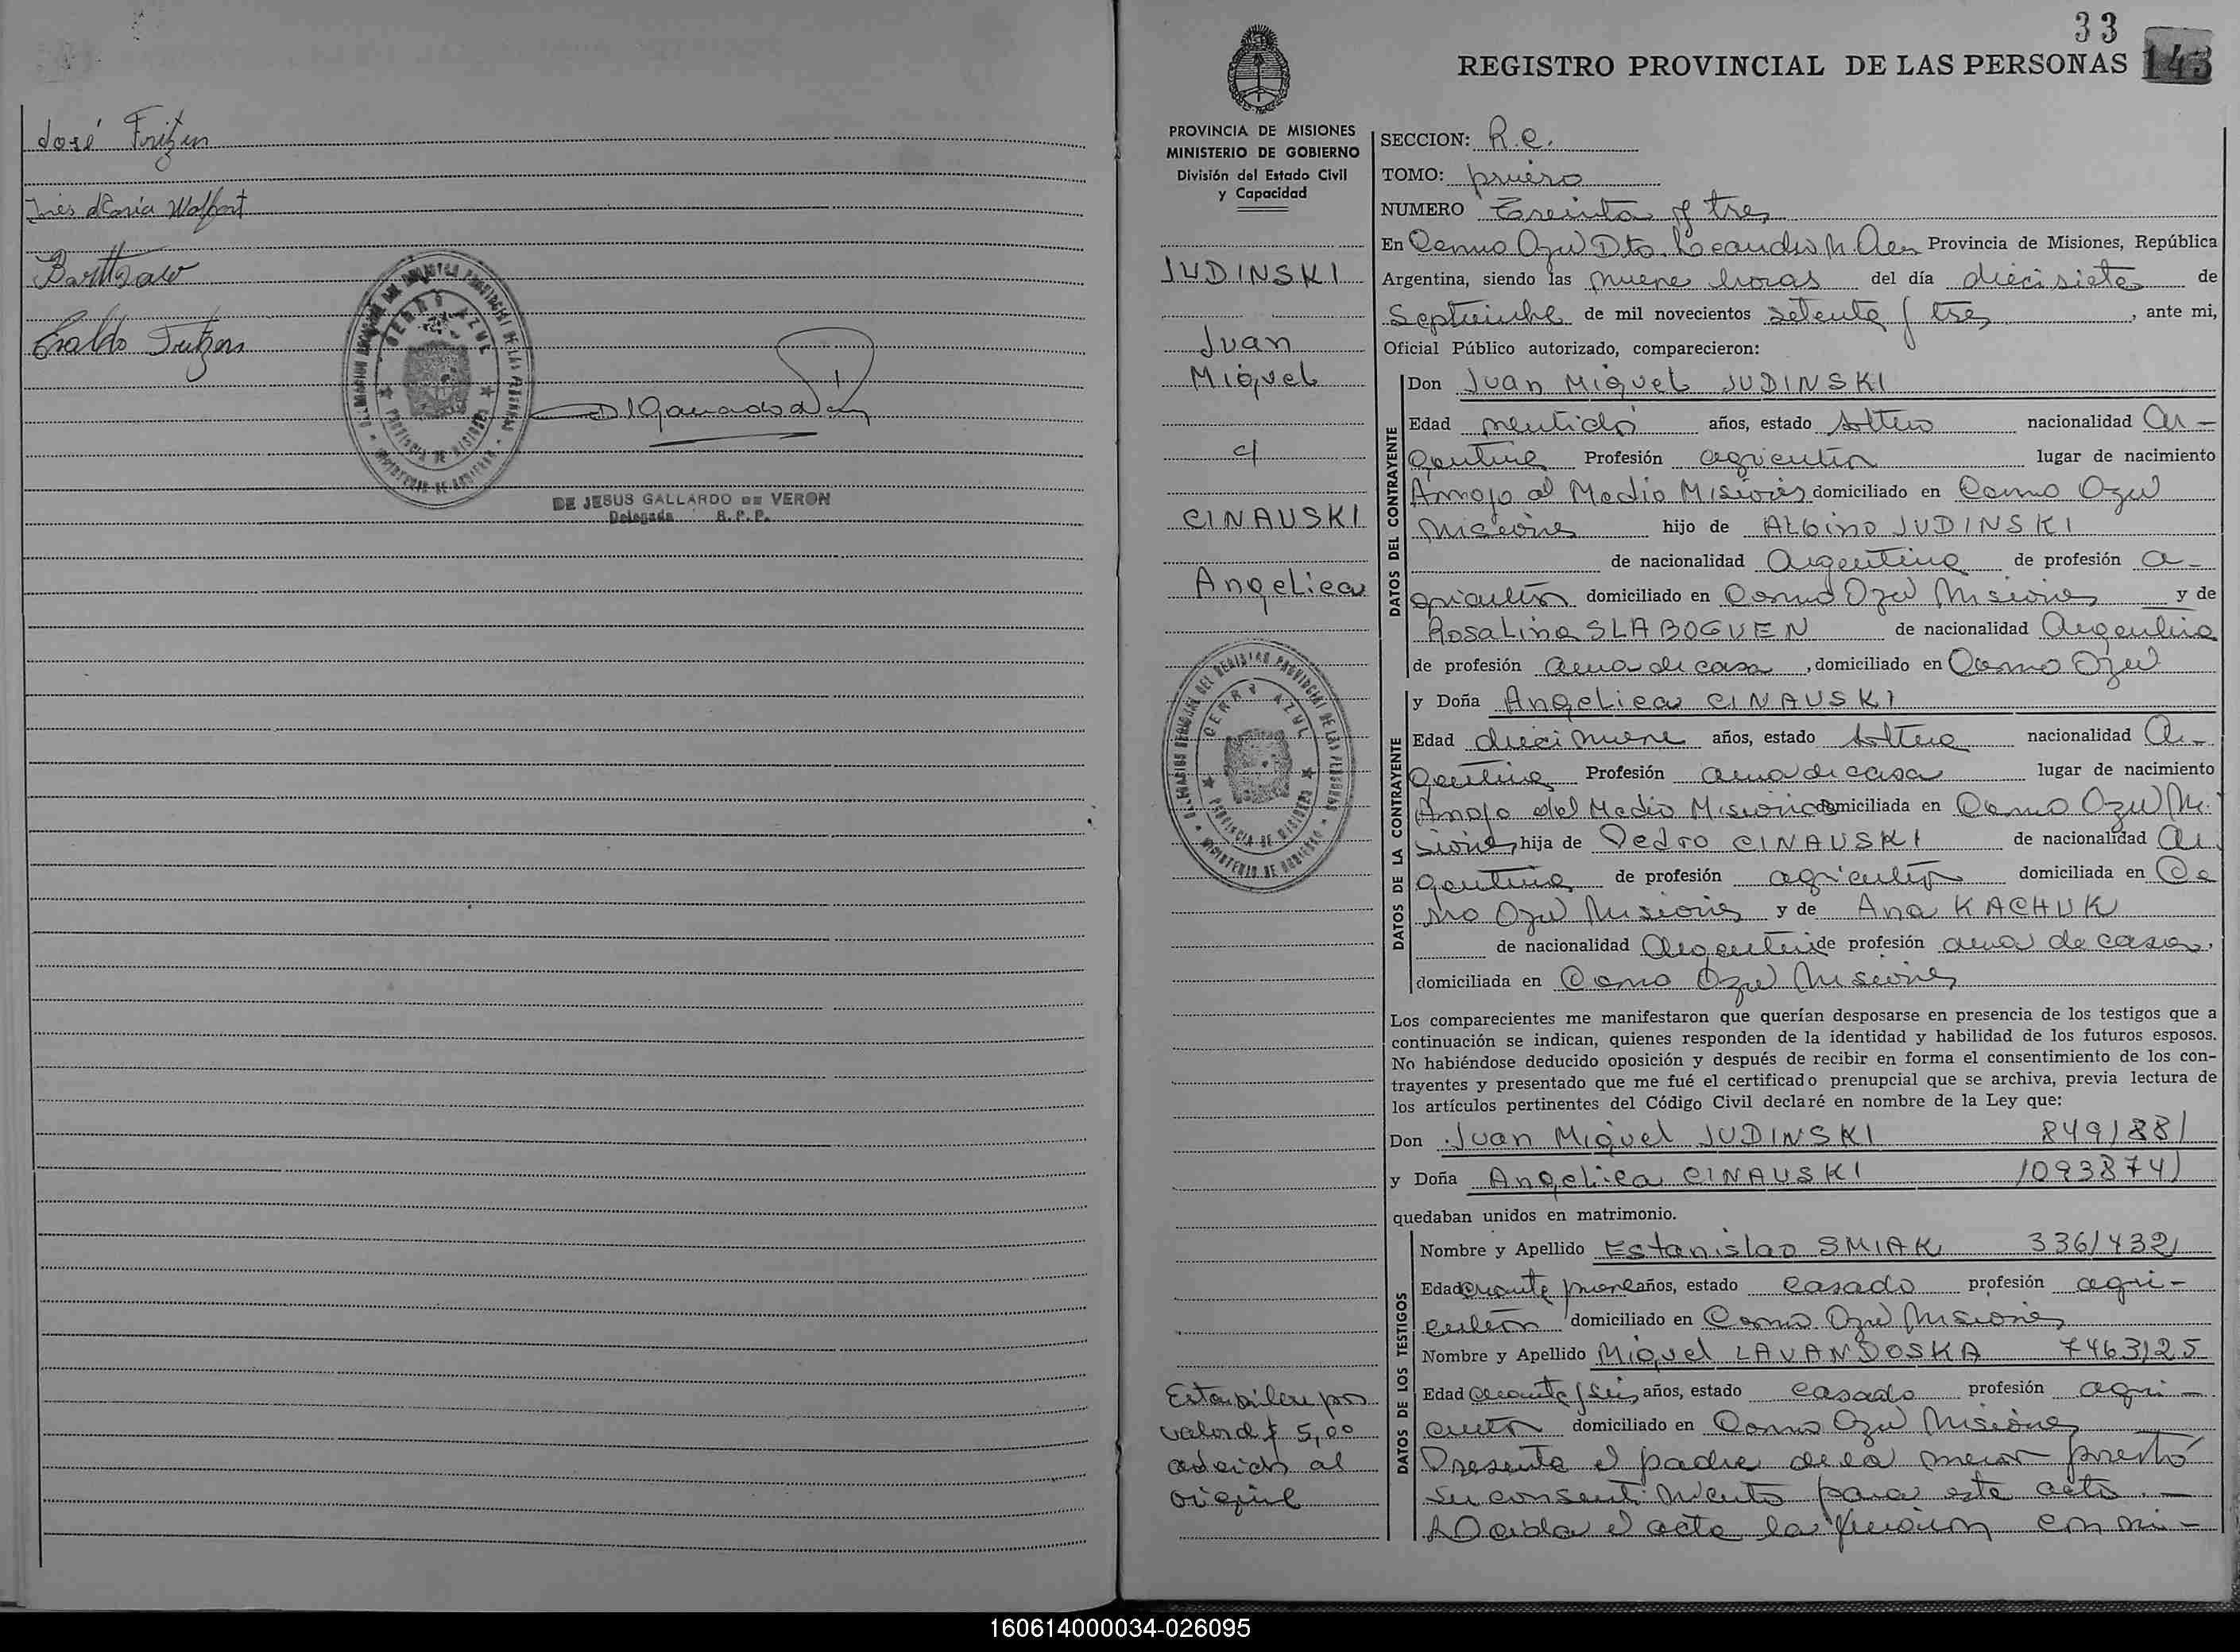 José Fritzen
Inés María Walfart
DE JESUS GALLARDO DE VERON
Delegada R.P.P.
33
REGISTRO PROVINCIAL DE LAS PERSONAS 143
PROVINCIA DE MISIONES
MINISTERIO DE GOBIERNO
División del Estado Civil
y Capacidad
JUDINSKI
Juan
Miguel
c/
CINAUSKI
Angelica
CERRO AZUL
PROVINCIA DE MISIONES
Estampillas por
valor d $ 5,00
al
SECCION: R.C.
TOMO: primero
NUMERO Treinta y tres
En Cerro Azul Dto. Leandro N. Alem Provincia de Misiones, República
Argentina, siendo las nueve horas del día diecisiete de
Septiembre de mil novecientos setenta y tres, ante mi,
Oficial Público autorizado, comparecieron:
DATOS DEL CONTRAYENTE
Don Juan Miguel JUDINSKI
Edad veintidós años, estado soltero nacionalidad Ar-
gentina Profesión agricultor lugar de nacimiento
Arroyo al Medio Misiones domiciliado en Cerro Azul
Misiones hijo de Albino JUDINSKI
de nacionalidad Argentina de profesión a-
gricultor domiciliado en Cerro Azul Misiones y de
Rosalina SLABOGUEN de nacionalidad Argentina
de profesión ama de casa, domiciliado en Cerro Azul
DATOS DE LA CONTRAYENTE
y Doña Angelica CINAUSKI
Edad diecinueve años, estado soltera nacionalidad Ar-
gentina Profesión ama de casa lugar de nacimiento
Arroyo del Medio Misiones domiciliada en Cerro Azul Mi-
siones hija de Pedro CINAUSKI de nacionalidad Ar
gentina de profesión agricultor domiciliada en Ce
rro Azul Misiones y de Ana KACHUK
de nacionalidad Argentina de profesión ama de casa,
domiciliada en Cerro Azul Misiones
Los comparecientes me manifestaron que querían desposarse en presencia de los testigos que a
continuación se indican, quienes responden de la identidad y habilidad de los futuros esposos.
No habiéndose deducido oposición y después de recibir en forma el consentimiento de los con-
trayentes y presentado que me fué el certificado prenupcial que se archiva, previa lectura de
los artículos pertinentes del Código Civil declaré en nombre de la Ley que:
Don Juan Miguel JUDINSKI 8491881
y Doña Angelica CINAUSKI 10938741
quedaban unidos en matrimonio.
DATOS DE LOS TESTIGOS
Nombre y Apellido Estanislao SMIAK 3361432
Edad años, estado casado profesión agri-
cultor domiciliado en Cerro Azul Misiones
Nombre y Apellido Miguel LAVANDOSKA 7463125
Edad cuarenta y seis, años, estado casado profesión agri-
cultor domiciliado en Cerro Azul Misiones
Presente el padre de la menor prestó
su consentimiento para este acto.—
Leida el acta la firman con mi-
160614000034-026095